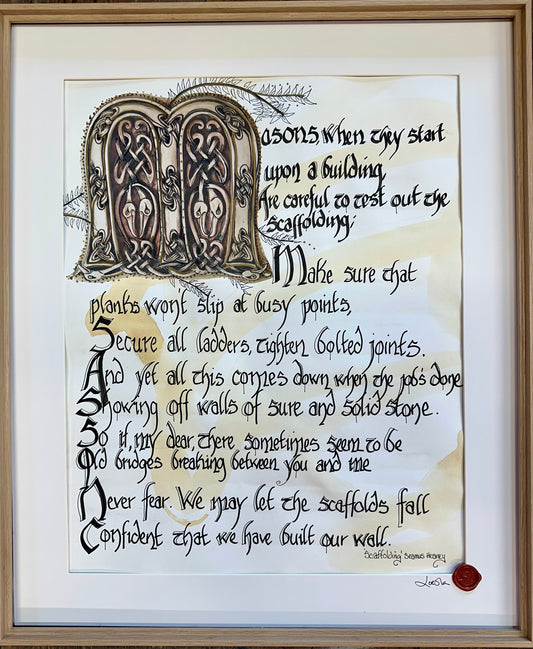 Masons, when they start
upon a building,
Are careful to test out the
scaffolding;
Make sure that
planks wont slip at busy points,
Secure all ladders, tighten bolted joints.
And yet all this comes down when the job's done
Showing off walls of sure and solid stone.
So if, my dear, there sometimes seem to be
Old bridges breaking between you and me
Never fear. We may let the scaffolds fall
Confident that we have built our wall.
'Scaffolding' Seamus Heaney